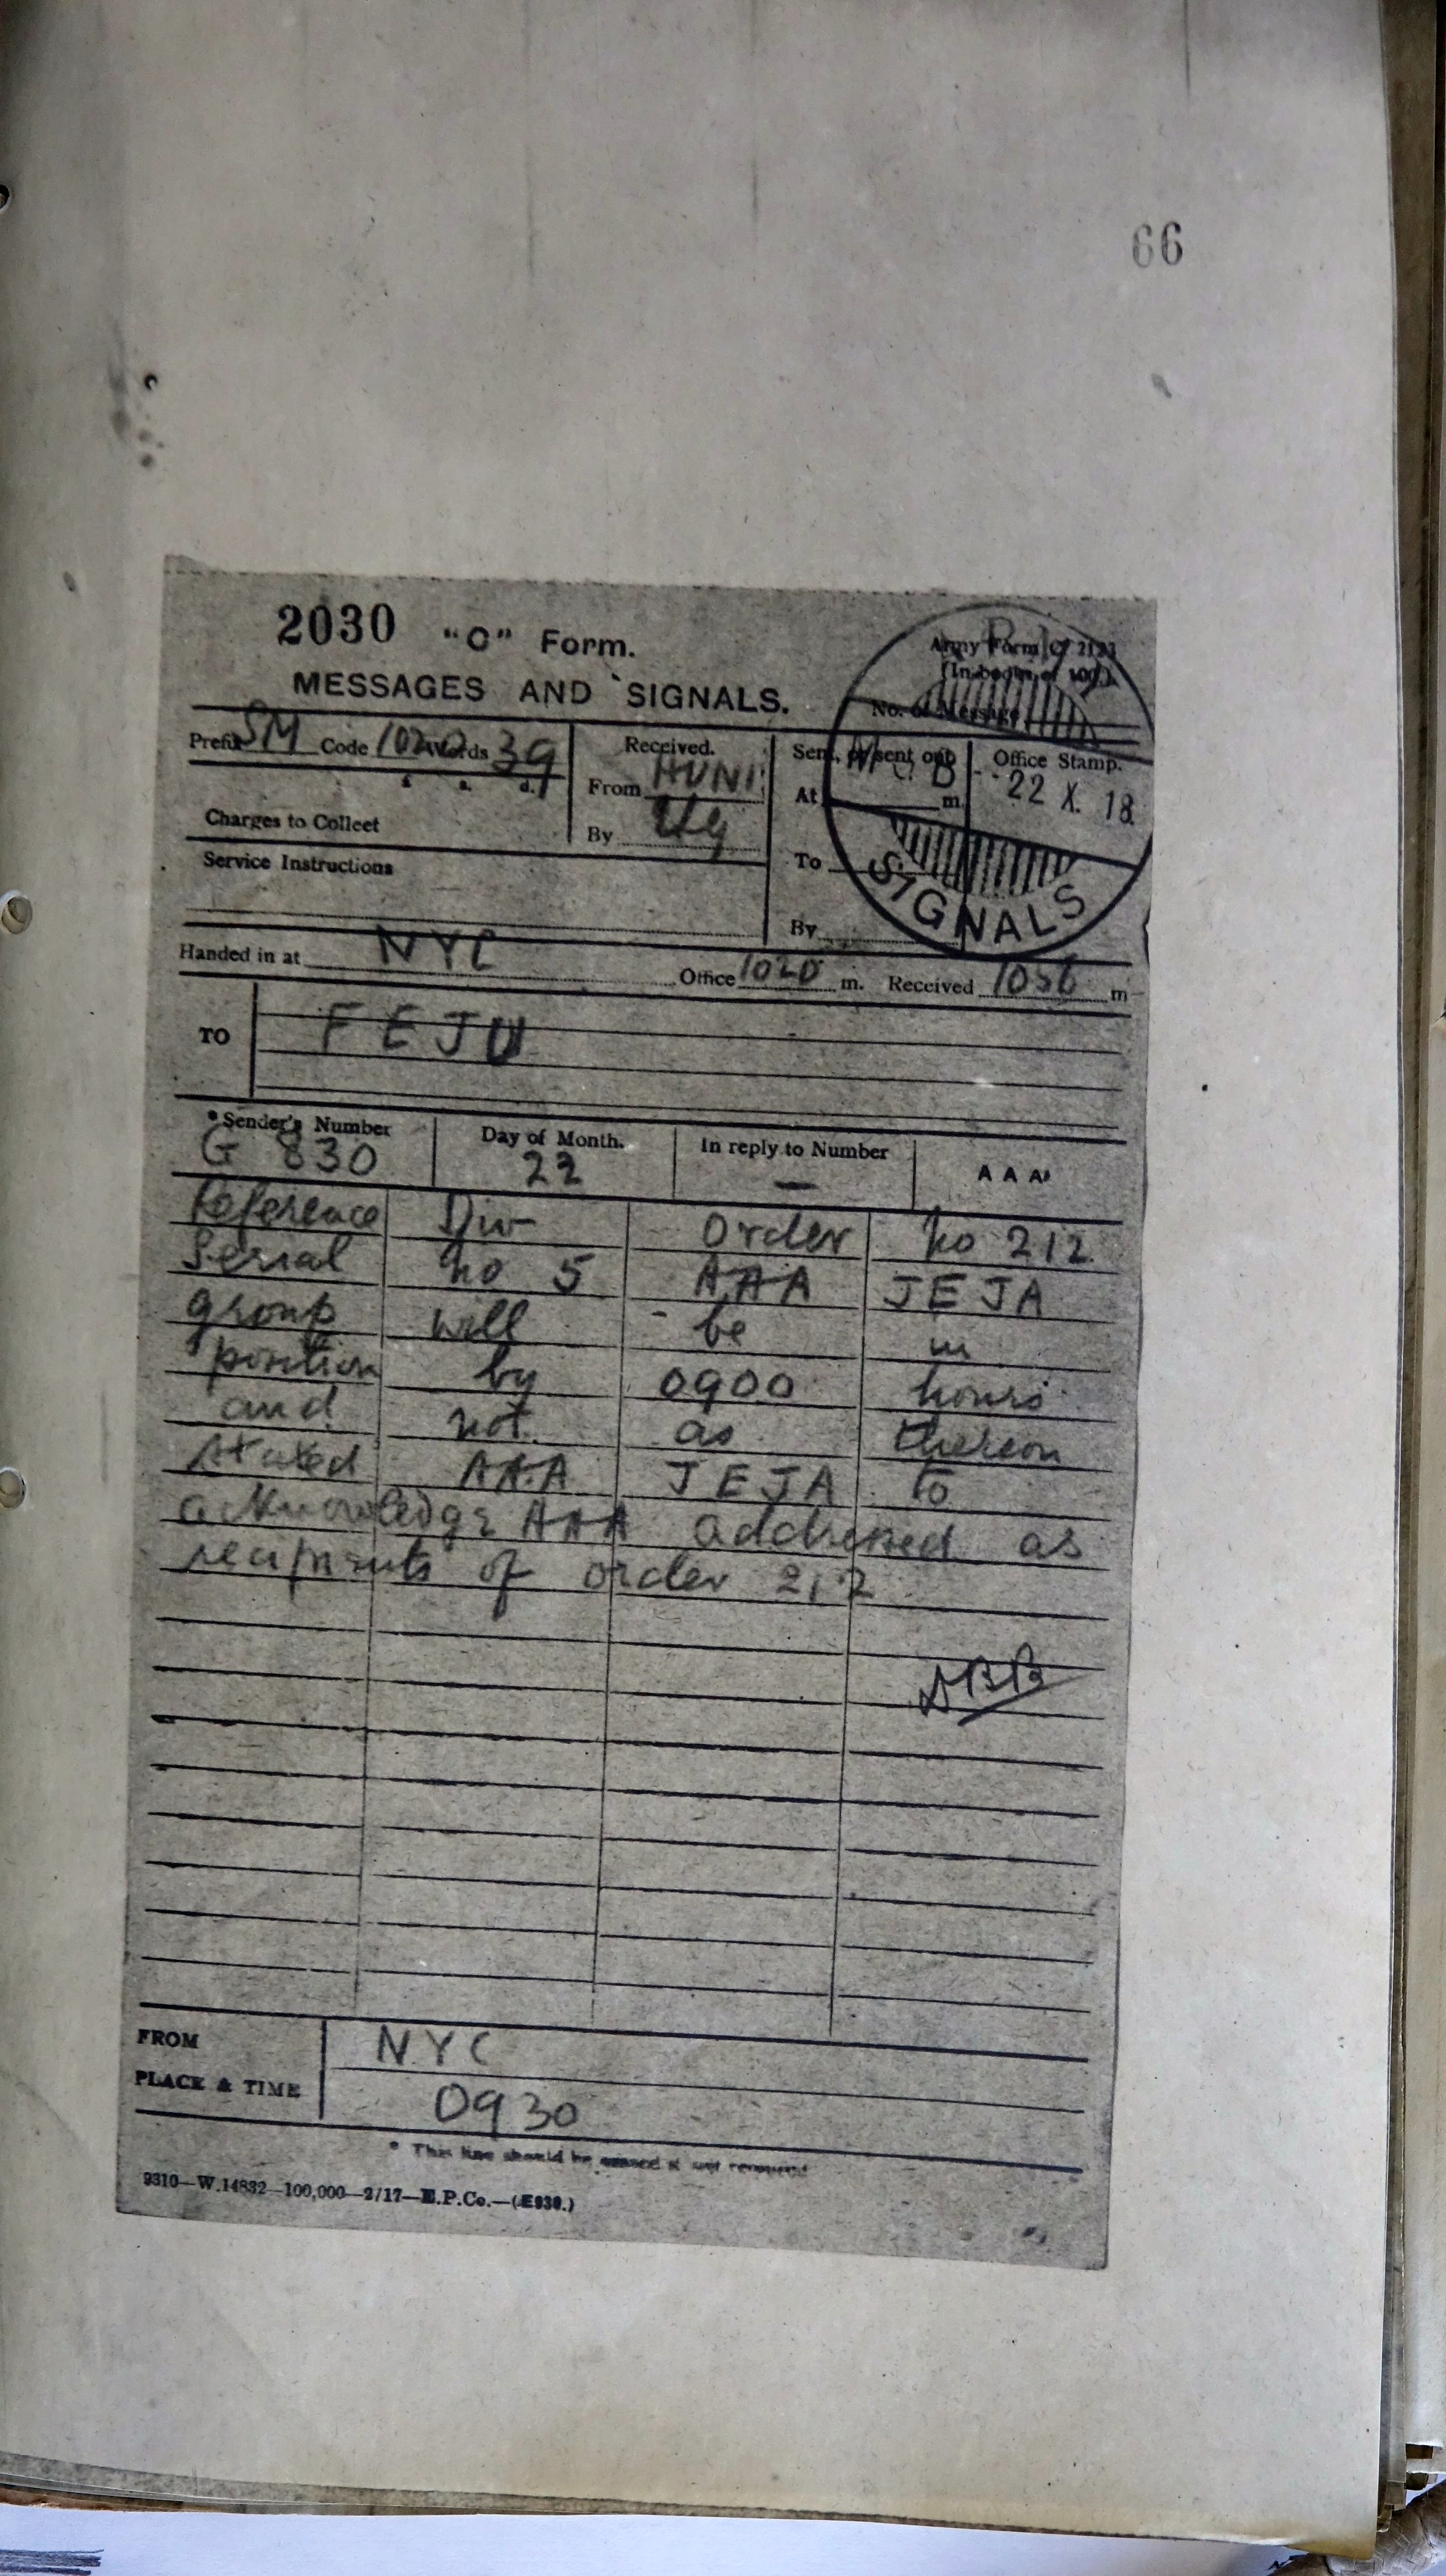 66
2030 "C" Form.
MESSAGES AND SIGNALS.
Army Form C. 2123
(In books of 100.)
No. of Message
Prefix SM Code 1020 Words 39
£ s. d.
Charges to Collect
Service Instructions
Received.
From
By
Sent, or sent out
At m.
To
By
Office Stamp.
22 X. 18.
SIGNALS
Handed in at NYC Office 1020 m. Received 1036 m
TO FEJU
*Sender's Number Day of Month. In reply to Number AAA
G 830 22 —
Reference Div Order No 212
Serial No 5 AAA JEJA
group will be in
position by 0900 hours
and not as thereon
stated AAA JEJA to
acknowledge AAA addressed as
recipients of order 212
FROM NYC
PLACE & TIME 0930
* This line should be erased if not required
9310—W.14832—100,000—2/17—E.P.Co.—(E939.)